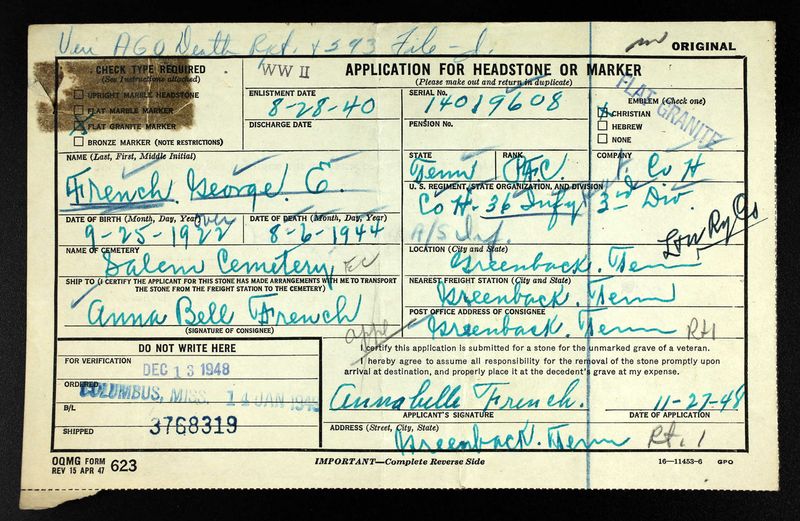 Veri AGO Death Rpt. & 293 File - J.
ORIGINAL
CHECK TYPE REQUIRED
(See Instructions attached)
UPRIGHT MARBLE HEADSTONE
FLAT MARBLE MARKER
FLAT GRANITE MARKER
BRONZE MARKER (NOTE RESTRICTIONS)
WW II
APPLICATION FOR HEADSTONE OR MARKER
(Please make out and return in duplicate)
ENLISTMENT DATE
8-28-40
DISCHARGE DATE
SERIAL No.
14019608
PENSION No.
EMBLEM (Check one)
CHRISTIAN
HEBREW
NONE
FLAT GRANITE
NAME (Last, First, Middle Initial)
French, George, E.
STATE
Tenn
RANK
P.F.C.
COMPANY
Co H
U. S. REGIMENT, STATE ORGANIZATION, AND DIVISION
Co H - 36 Infy 3rd Div.
A/S Inf.
DATE OF BIRTH (Month, Day, Year)
9-25-1922
DATE OF DEATH (Month, Day, Year)
8-6-1944
NAME OF CEMETERY
Salem Cemetery
LOCATION (City and State)
Greenback. Tenn
SHIP TO (I CERTIFY THE APPLICANT FOR THIS STONE HAS MADE ARRANGEMENTS WITH ME TO TRANSPORT
THE STONE FROM THE FREIGHT STATION TO THE CEMETERY)
Anna Bell French
(SIGNATURE OF CONSIGNEE)
NEAREST FREIGHT STATION (City and State)
Greenback. Tenn
POST OFFICE ADDRESS OF CONSIGNEE
Greenback. Tenn Rt 1
appl
DO NOT WRITE HERE
FOR VERIFICATION
DEC 13 1948
ORDERED
COLUMBUS, MISS. 14 JAN 1949
B/L
SHIPPED
3768319
I certify this application is submitted for a stone for the unmarked grave of a veteran.
I hereby agree to assume all responsibility for the removal of the stone promptly upon
arrival at destination, and properly place it at the decedent's grave at my expense.
Annabelle French.
11-27-48
APPLICANT'S SIGNATURE
DATE OF APPLICATION
ADDRESS (Street, City, State)
Greenback. Tenn Rt. 1
OQMG FORM
REV 15 APR 47 623
IMPORTANT—Complete Reverse Side
16—11453-6 GPO